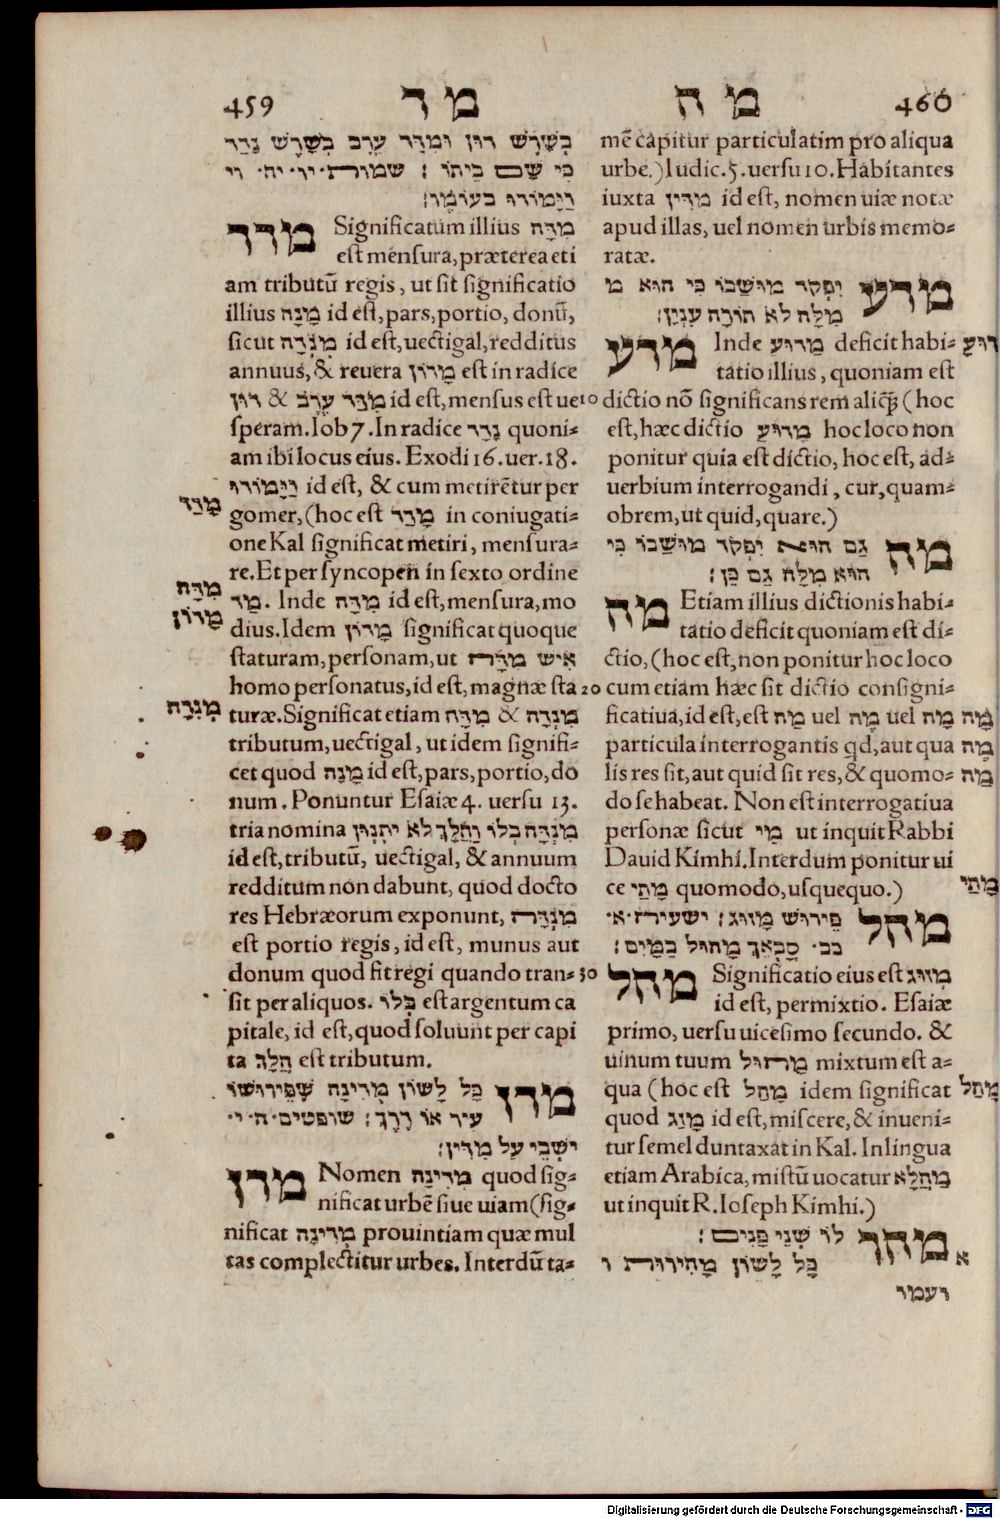 459 מ ד
בְּשֹׁרֶשׁ דון וּמִדַּד עָרֶב בְּשֹׁרֶשׁ נָדַד
כִּי שָׁם בֵּיתוֹ : שמות יו יח וי
וַיָּמוֹדּוּ בעוֹמֶר:
מדד Significatum illius מִדָּה
est mensura, præterea eti
am tributũ regis, ut sit significatio
illius מָנָה id est, pars, portio, donũ,
sicut מִנְדָּה id est, uectigal, redditus
annuus, & reuera מָדוֹן est in radice
דון & מִדַּד עֶרֶב id est, mensus est ue
speram. Iob 7. In radice נָדַד quoni-
am ibi locus eius. Exodi 16. uer. 18.
וַיָּמוֹדּוּ id est, & cum metirẽtur per
מָדַד
gomer, (hoc est מָדַד in coniugati-
one Kal significat metiri, mensura-
re. Et per syncopen in sexto ordine
מִדָּה
מַד. Inde מִדָּה id est, mensura, mo
מָדוֹן
dius. Idem מָדוֹן significat quoque
staturam, personam, ut אִישׁ מִדָּה
homo personatus, id est, magnæ sta
מִנְדָּה
turæ. Significat etiam מִדָּה & מִנְדָּה
tributum, uectigal, ut idem signifi-
cet quod מָנָה id est, pars, portio, do
num. Ponuntur Esaiæ 4. uersu 13.
tria nomina מִנְדָּה בְלוֹ וַהֲלָךְ לֹא יִתְּנוּן
id est, tributũ, uectigal, & annuum
redditum non dabunt, quod docto
res Hebræorum exponunt, מִנְדָּה
est portio regis, id est, munus aut
donum quod fit regi quando tran-
sit per aliquos. בְּלוֹ est argentum ca
pitale, id est, quod soluunt per capi
ta הֲלָךְ est tributum.
מדן כָּל לָשׁוֹן מְדִינָה שֶׁפֵּירוּשׁוֹ
עיר אוֹ דֶרֶךְ: שופטים ה י
יֹשְׁבֵי עַל מִדִּין:
מדן Nomen מְדִינָה quod sig-
nificat urbẽ siue uiam (sig-
nificat מְדִינָה prouintiam quæ mul
tas complectitur urbes. Interdũ ta-
מ ה 460
mẽ capitur particulatim pro aliqua
urbe.) Iudic. 5. uersu 10. Habitantes
iuxta מִדִּין id est, nomen uiæ notæ
apud illas, uel nomen urbis memo-
ratæ.
מדע יִפְקֹד מוֹשָׁבוֹ כִּי הוּא מ
מִלָּה לֹא תוֹרֶה עִנְיָן:
מדע Inde מַדּוּעַ deficit habi-
דּוּעַ
tatio illius, quoniam est
10 dictio nõ significans rem aliq̃ (hoc
est, hæc dictio מַדּוּעַ hoc loco non
ponitur quia est dictio, hoc est, ad-
uerbium interrogandi, cur, quam-
obrem, ut quid, quare.)
מה גַּם הוּא יִפְקֹד מוֹשָׁבוֹ כִּי
הוּא מִלָּה גַּם כֵּן:
מה Etiam illius dictionis habi-
tatio deficit quoniam est di-
ctio, (hoc est, non ponitur hoc loco
20 cum etiam hæc sit dictio consigni-
ficatiua, id est, est מַה uel מֶה uel מָה
מָה
particula interrogantis qd, aut qua
מֶה
lis res sit, aut quid sit res, & quomo-
מַה
do se habeat. Non est interrogatiua
personæ sicut מִי ut inquit Rabbi
Dauid Kimhi. Interdum ponitur ui
ce מָתַי quomodo, usquequo.)
מָתַי
מהל פֵּירוּשׁ מָזוּג: ישעיה א
כב סָבְאֵךְ מָהוּל בַּמָּיִם:
30 מהל Significatio eius est מָזוּג
id est, permixtio. Esaiæ
primo, uersu uicesimo secundo. &
uinum tuum מָהוּל mixtum est a-
qua (hoc est מָהַל idem significat
מָהַל
quod מָזַג id est, miscere, & inueni-
tur semel duntaxat in Kal. In lingua
etiam Arabica, mistũ uocatur מַהֲלָא
ut inquit R. Ioseph Kimhi.)
מהר לוֹ שְׁנֵי פָנִים:
כָּל לָשׁוֹן מְהִירוּת ו א
ועמו
Digitalisierung gefördert durch die Deutsche Forschungsgemeinschaft - DFG